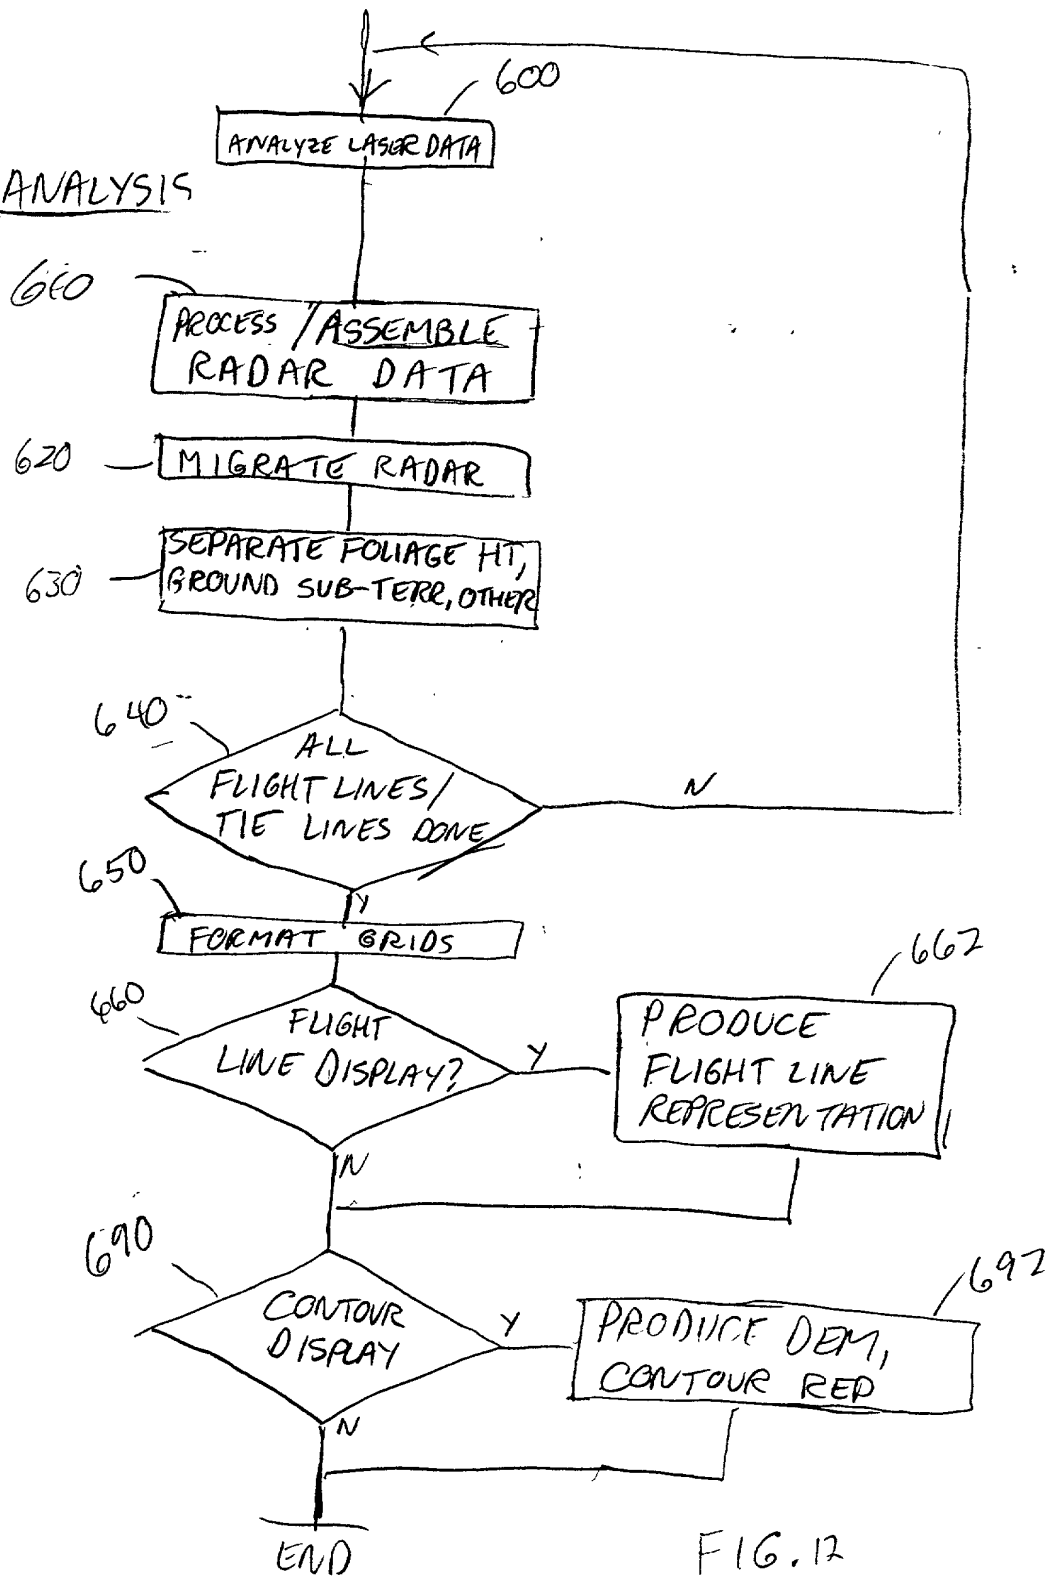 600
ANALYZE LASER DATA
ANALYSIS
610
PROCESS / ASSEMBLE
RADAR DATA
620
MIGRATE RADAR
630
SEPARATE FOLIAGE HT,
GROUND SUB-TERR, OTHER
640
ALL
FLIGHT LINES/
TIE LINES DONE
N
Y
650
FORMAT GRIDS
660
FLIGHT
LINE DISPLAY?
Y
N
662
PRODUCE
FLIGHT LINE
REPRESENTATION
690
CONTOUR
DISPLAY
Y
N
692
PRODUCE DEM,
CONTOUR REP
END
FIG. 12